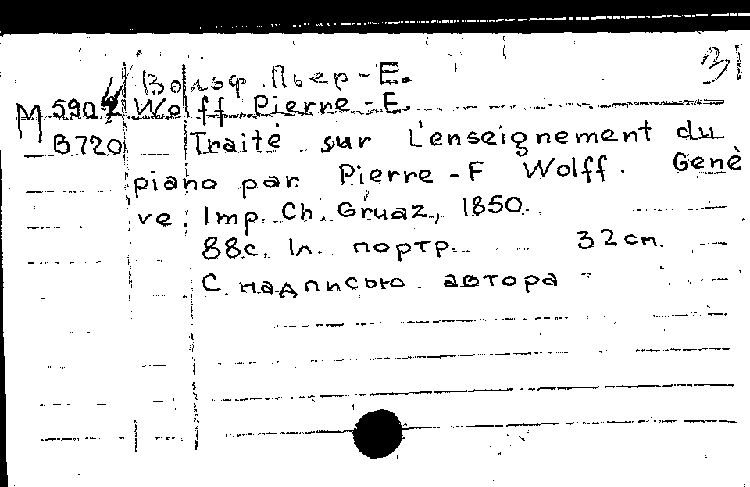 31
Вольф Пьер-Е.
М 590 Wolff Pierre-E.
В720 Traité sur L'enseignement du
piano par Pierre-F Wolff. Genè
ve: Imp. Ch. Gruaz, 1850.
88с. 1л. портр. 32см.
С надписью автора